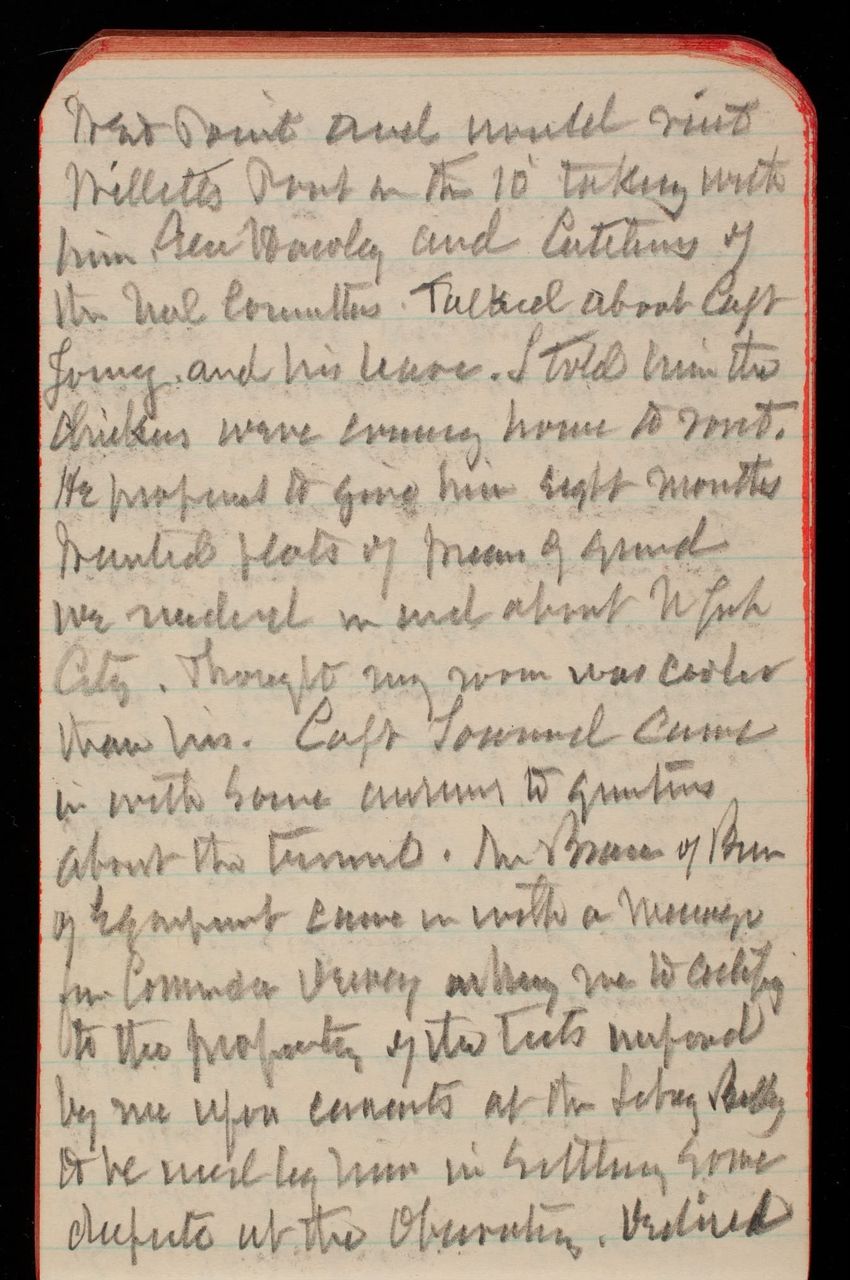 West Point and would visit
Willetts Point on the 10 taking with
him Gen Hawley and Cutcheon of
the Mil Committees. Talked about Capt
and his leave. I told him the
chickens were coming home to roost.
He proposed to give him eight months
Wanted plats of piece of ground
we needed in and about N York
City. Thought my room was cooler
than his. Capt came
in with some answers to questions
about the tunnel. Mr of Bureau
of Equipment came in with a message
from Commander Dewey asking me to certify
to the propriety of the tests imposed
by me upon cements at the Library Bldg
to be used by him in settling some
dispute at the Observatory. Declined